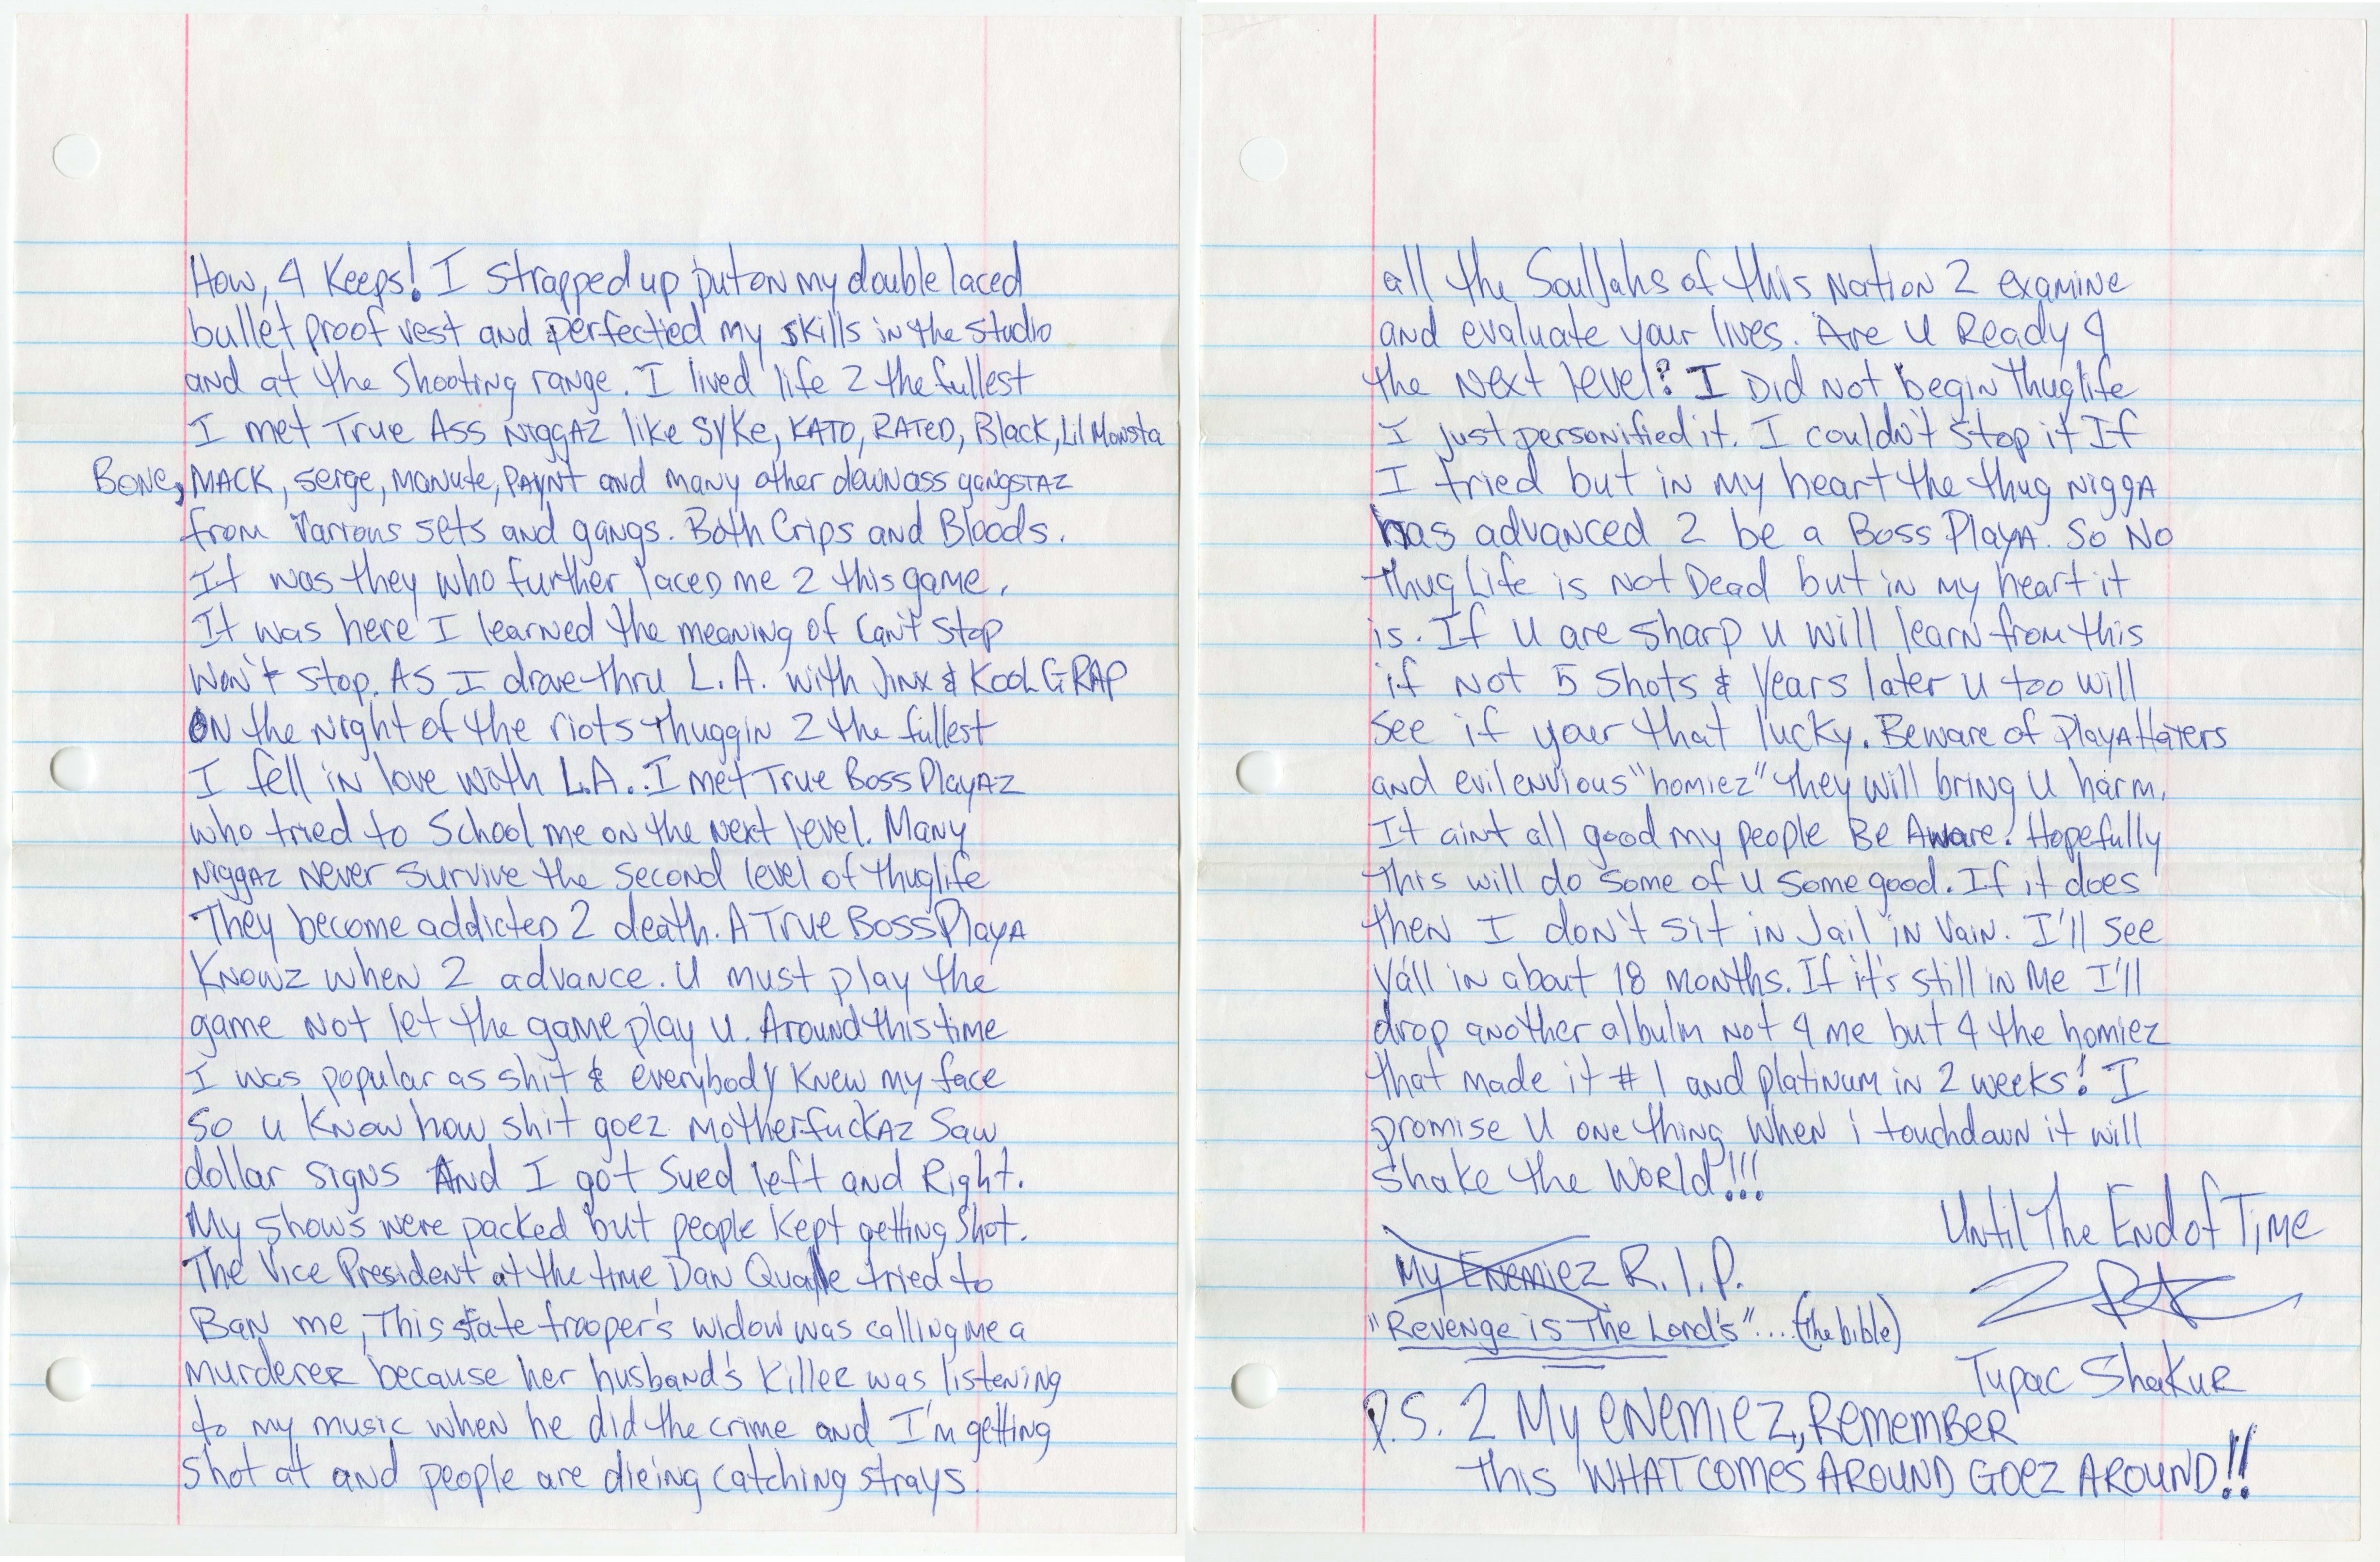 How, 4 Keeps! I strapped up put on my double laced
bullet proof vest and perfected my skills in the studio
and at the shooting range. I lived life 2 the fullest
I met True Ass Niggaz like Syke, KATO, RATED, Black, Lil Monsta
Bone, MACK, Serge, Manute, PAYNT and many other down ass gangstaz
from various sets and gangs. Both Crips and Bloods.
It was they who further laced me 2 this game.
It was here I learned the meaning of Can't Stop
Won't Stop. As I drove thru L.A. with Jinx & Kool G RAP
ON the night of the riots thuggin 2 the fullest
I fell in love with L.A.. I met True Boss Playaz
who tried to School me on the next level. Many
Niggaz Never survive the second level of thuglife
They become addicted 2 death. A True Boss Playa
Knowz when 2 advance. U must play the
game not let the game play U. Around this time
I was popular as shit & everybody knew my face
So u know how shit goez Motherfuckaz Saw
dollar signs And I got Sued left and Right.
My shows were packed but people kept getting shot.
The Vice President at the time Dan Quale tried to
Ban me, This state trooper's widow was calling me a
murderer because her husband's killer was listening
to my music when he did the crime and I'm getting
shot at and people are dieing catching strays.
all the Souljahs of this Nation 2 examine
and evaluate your lives. Are U Ready 4
the Next level? I Did Not begin thuglife
I just personified it. I couldn't stop it If
I tried but in my heart the thug Nigga
has advanced 2 be a Boss Playa. So No
thug Life is Not Dead but in my heart it
is. If U are sharp u will learn from this
if Not 5 shots & Years later u too will
see if your that lucky. Beware of Playa Haters
and evil envious "homiez" they will bring U harm.
It aint all good my people Be Aware. Hopefully
this will do some of U some good. If it does
then I don't sit in Jail in Vain. I'll see
Ya'll in about 18 months. If it's still in Me I'll
drop another albulm not 4 me but 4 the homiez
that made it #1 and platinum in 2 weeks! I
promise U one thing when i touchdown it will
shake the World!!!
Until The End of Time
My Enemiez R.I.P.
"Revenge is The Lord's".... (the bible)
Tupac Shakur
P.S. 2 My enemiez, Remember
this WHAT COMES AROUND GOEZ AROUND!!